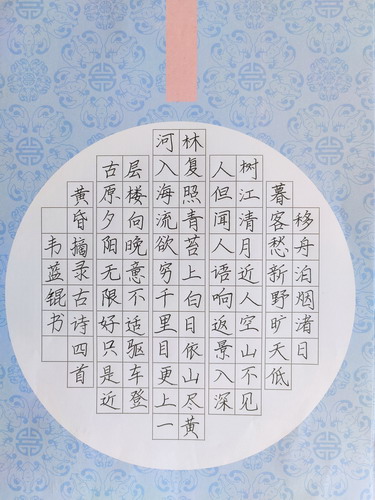 移舟泊烟渚日
暮客愁新野旷天低
树江清月近人空山不见
人但闻人语响返景入深
林复照青苔上白日依山尽黄
河入海流欲穷千里目更上一
层楼向晚意不适驱车登
古原夕阳无限好只是近
黄昏摘录古诗四首
韦蓝锟书